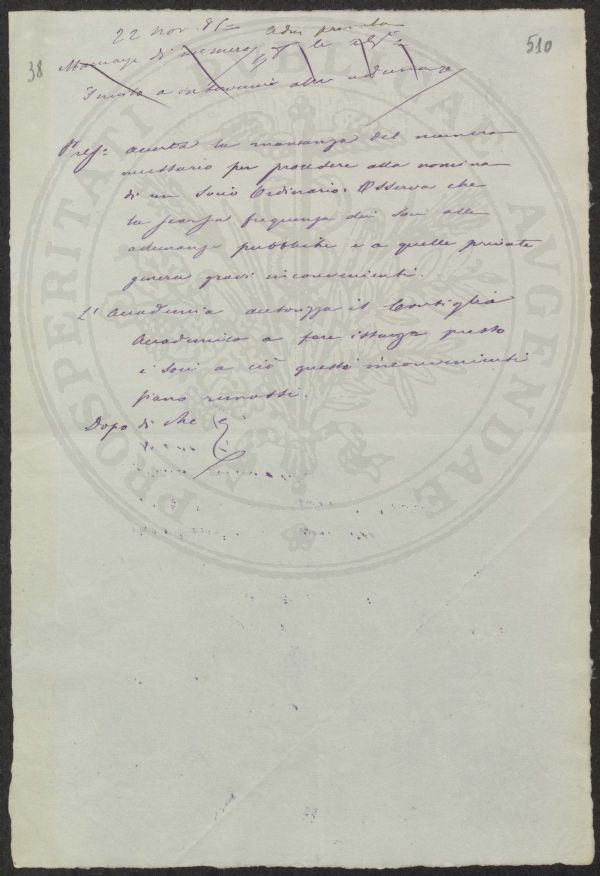 22 nov. 85 adza privata
38
510
Mancanza di numero
Invito a intervenire alle adunanze
Pres.e avverte la mancanza del numero
necessario per procedere alla nomina
di un Socio Ordinario. Osserva che
la scarsa frequenza dei Soci alle
adunanze pubbliche e a quelle private
genera gravi inconvenienti.
L'Accademia autorizza il Consiglio
Accademico a fare istanza presso
i Soci a ciò questi inconvenienti
siano rimossi.
Dopo di che
PROSPERITATI PUBLICAE AUGENDAE